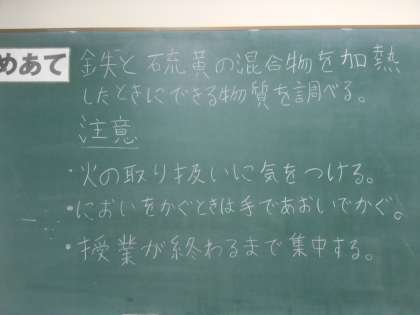 めあて 鉄と硫黄の混合物を加熱
したときにできる物質を調べる。
注意
・火の取り扱いに気をつける。
・においをかぐときは手であおいでかぐ。
・授業が終わるまで集中する。